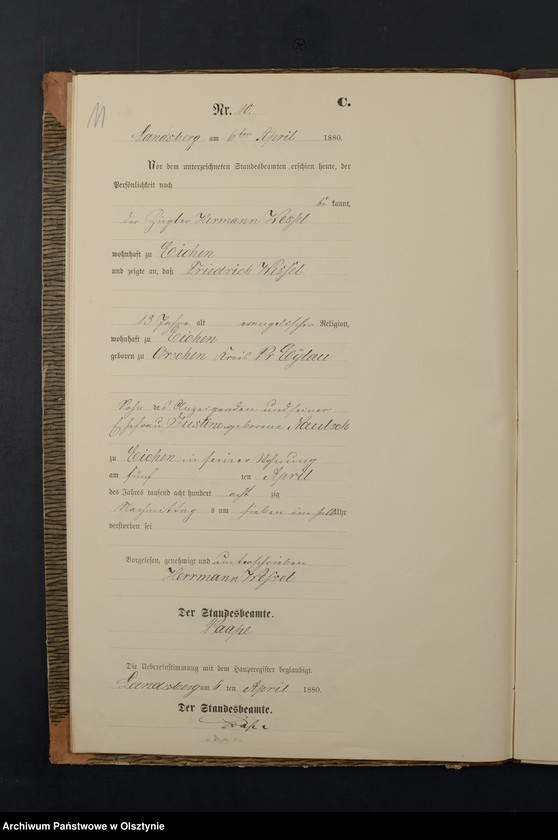 11
C.
Nr. 10.
Landsberg am 6ten April 1880.
Vor dem unterzeichneten Standesbeamten erschien heute, der
Persönlichkeit nach
be kannt,
der Ziegler Hermann Wessel
wohnhaft zu Eichen
und zeigte an, daß Friedrich Wessel
13 Jahre alt evangelischer Religion,
wohnhaft zu Eichen
geboren zu Orschen Kreis Pr Eylau
Sohn des Anzeigenden und seiner
Ehefrau Justine geborene
zu Eichen in seiner Wohnung
am fünf ten April
des Jahres tausend acht hundert acht zig
Nachmittag s um sieben ein halb Uhr
verstorben sei
Vorgelesen, genehmigt und unterschrieben
Herrmann Wessel
Der Standesbeamte.
Die Uebereinstimmung mit dem Hauptregister beglaubigt.
Landsberg am 6 ten April 1880.
Der Standesbeamte.
Archiwum Państwowe w Olsztynie